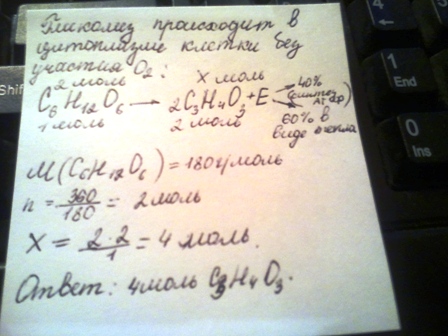 Гликолиз происходит в
цитоплазме клетки без
участия O₂:
2 моль X моль
C₆H₁₂O₆ → 2C₃H₄O₃ + E → 40%
(синтез АТФ)
1 моль 2 моль 60% в
виде тепла
M(C₆H₁₂O₆) = 180 г/моль
n = 360/180 = 2 моль
X = 2·2/1 = 4 моль.
Ответ: 4 моль C₃H₄O₃.
Shift
4
1
End
0
Ins